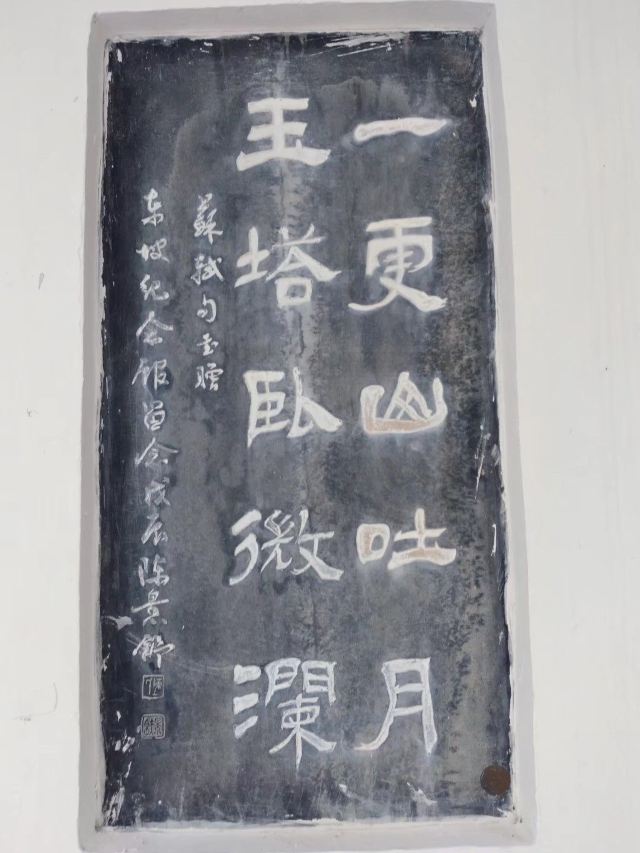 一更山吐月
玉塔臥微瀾
蘇軾句書贈
东坡纪念馆留念戊辰陈景舒